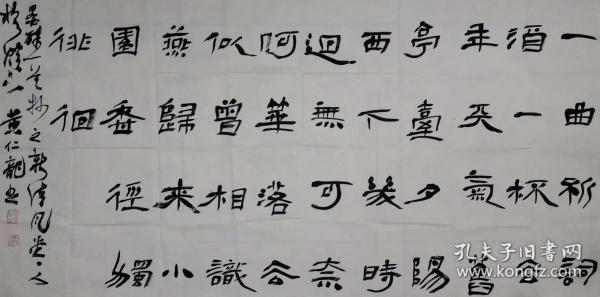 一曲新詞
酒一杯去
年天氣舊
亭臺夕陽
西下幾時
迴無可奈
何華落去
似曾相識
燕歸來小
園香徑獨
徘徊
晏殊一首
黃仁龍書
孔夫子旧书网
www.kongfz.com